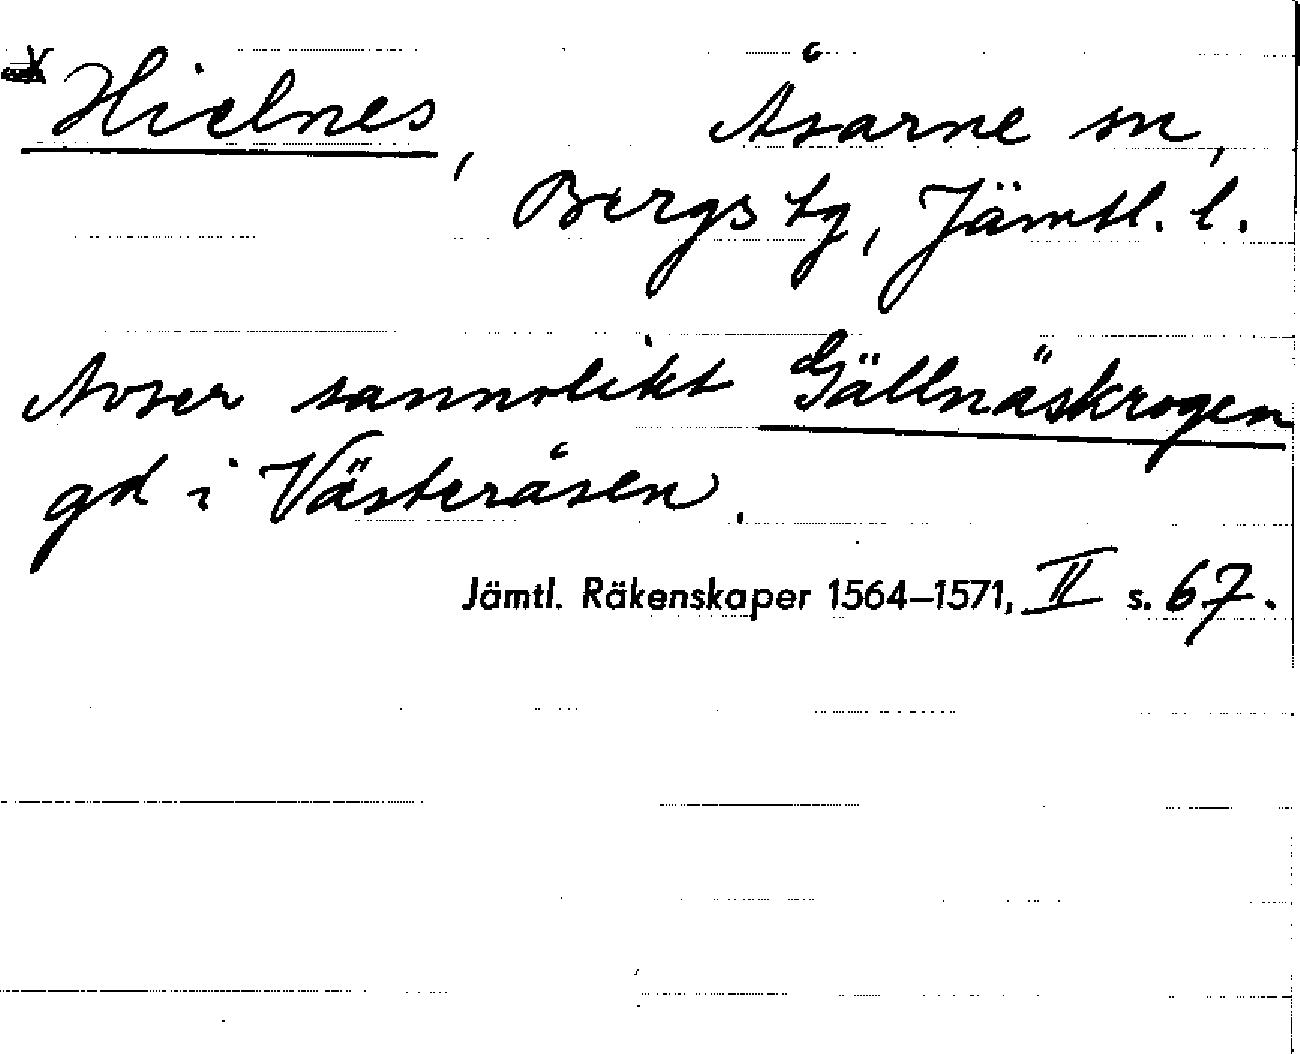 Hielnes, Åsarne sn,
Bergs tg, Jämtl. l.
Avser sannolikt Gällnäskrogen
gd i Västeråsen.
Jämtl. Räkenskaper 1564–1571, II s. 67.